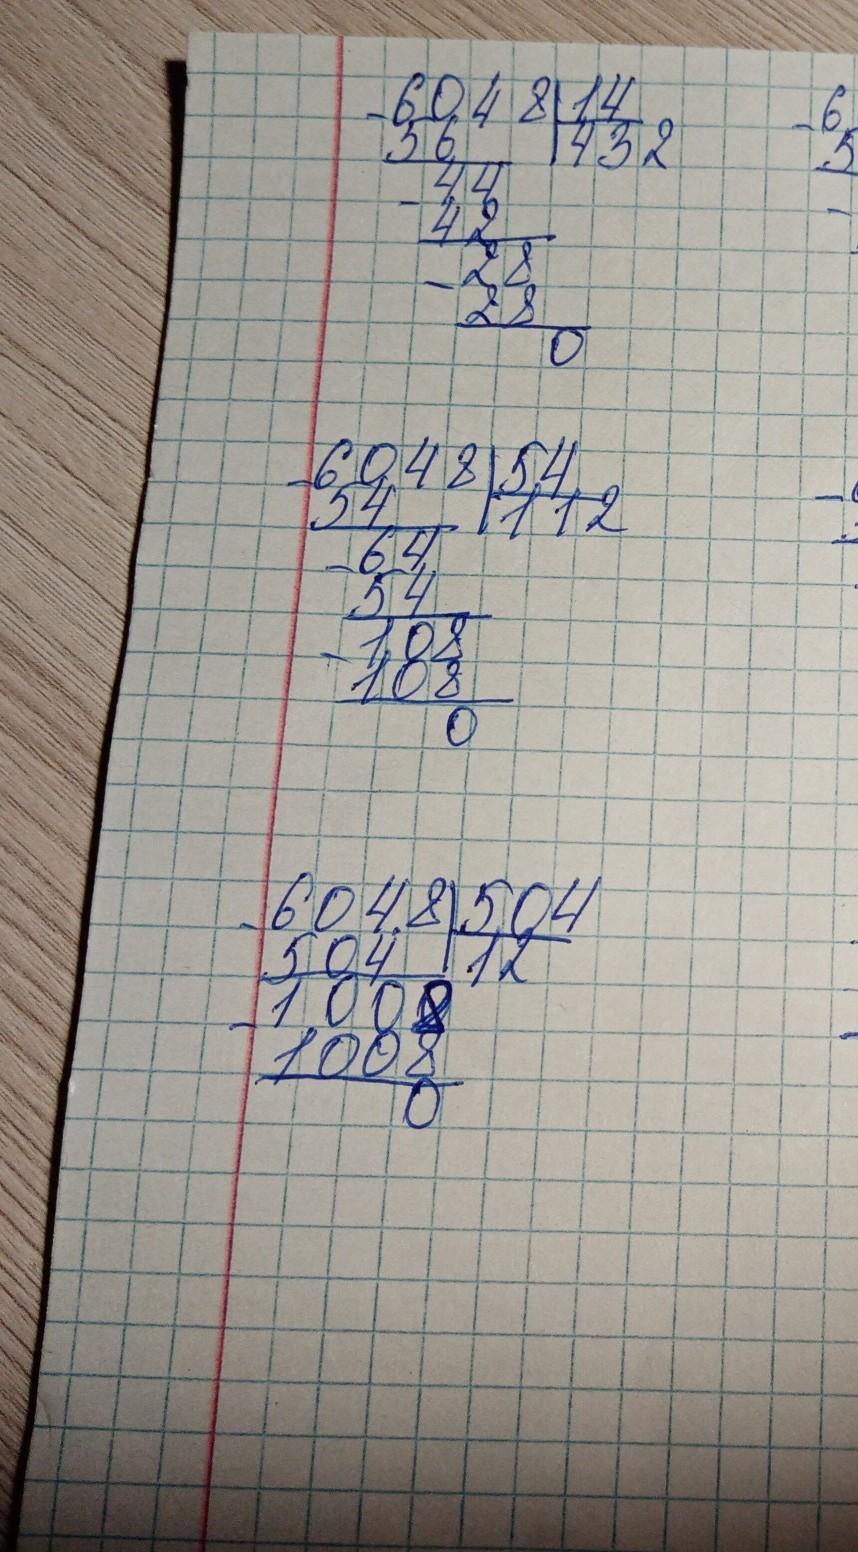 -6048|14
56 |432
-44
42
-28
28
0
-6048|54
54 |112
-64
54
-108
108
0
-6048|504
504 |12
-1008
1008
0
-6
5
-